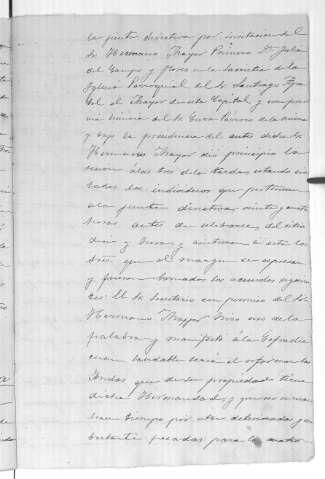 la junta directiva por invitacion del
Sr. Hermano Mayor Primero Dn. Julian
del Campo y Flores en la Sacristia de la
Iglesia Parroquial del Sr. Santiago
el Mayor de esta Capital y
del Sr. Cura Párroco de la misma
y bajo la presidencia del antes dicho Sr.
Hermano Mayor dió principio la
sesion á las tres de la tarde estando
todos los individuos que pertenecen
á la junta directiva, veinte y cuatro
horas antes de celebrarse del sitio
dia y hora; y asistieron á este los
Sres. que al margen se espresan
y fueron tomados los acuerdos siguien
tes: El Sr. Secretario con permiso del Sr.
Hermano Mayor hizo uso de la
palabra y manifestó á la Cofradia
cuan laudable seria el reformar las
andas que de su propiedad tiene
dicha Hermandad y que
tiempo por estar deterioradas y
bastante pesadas para